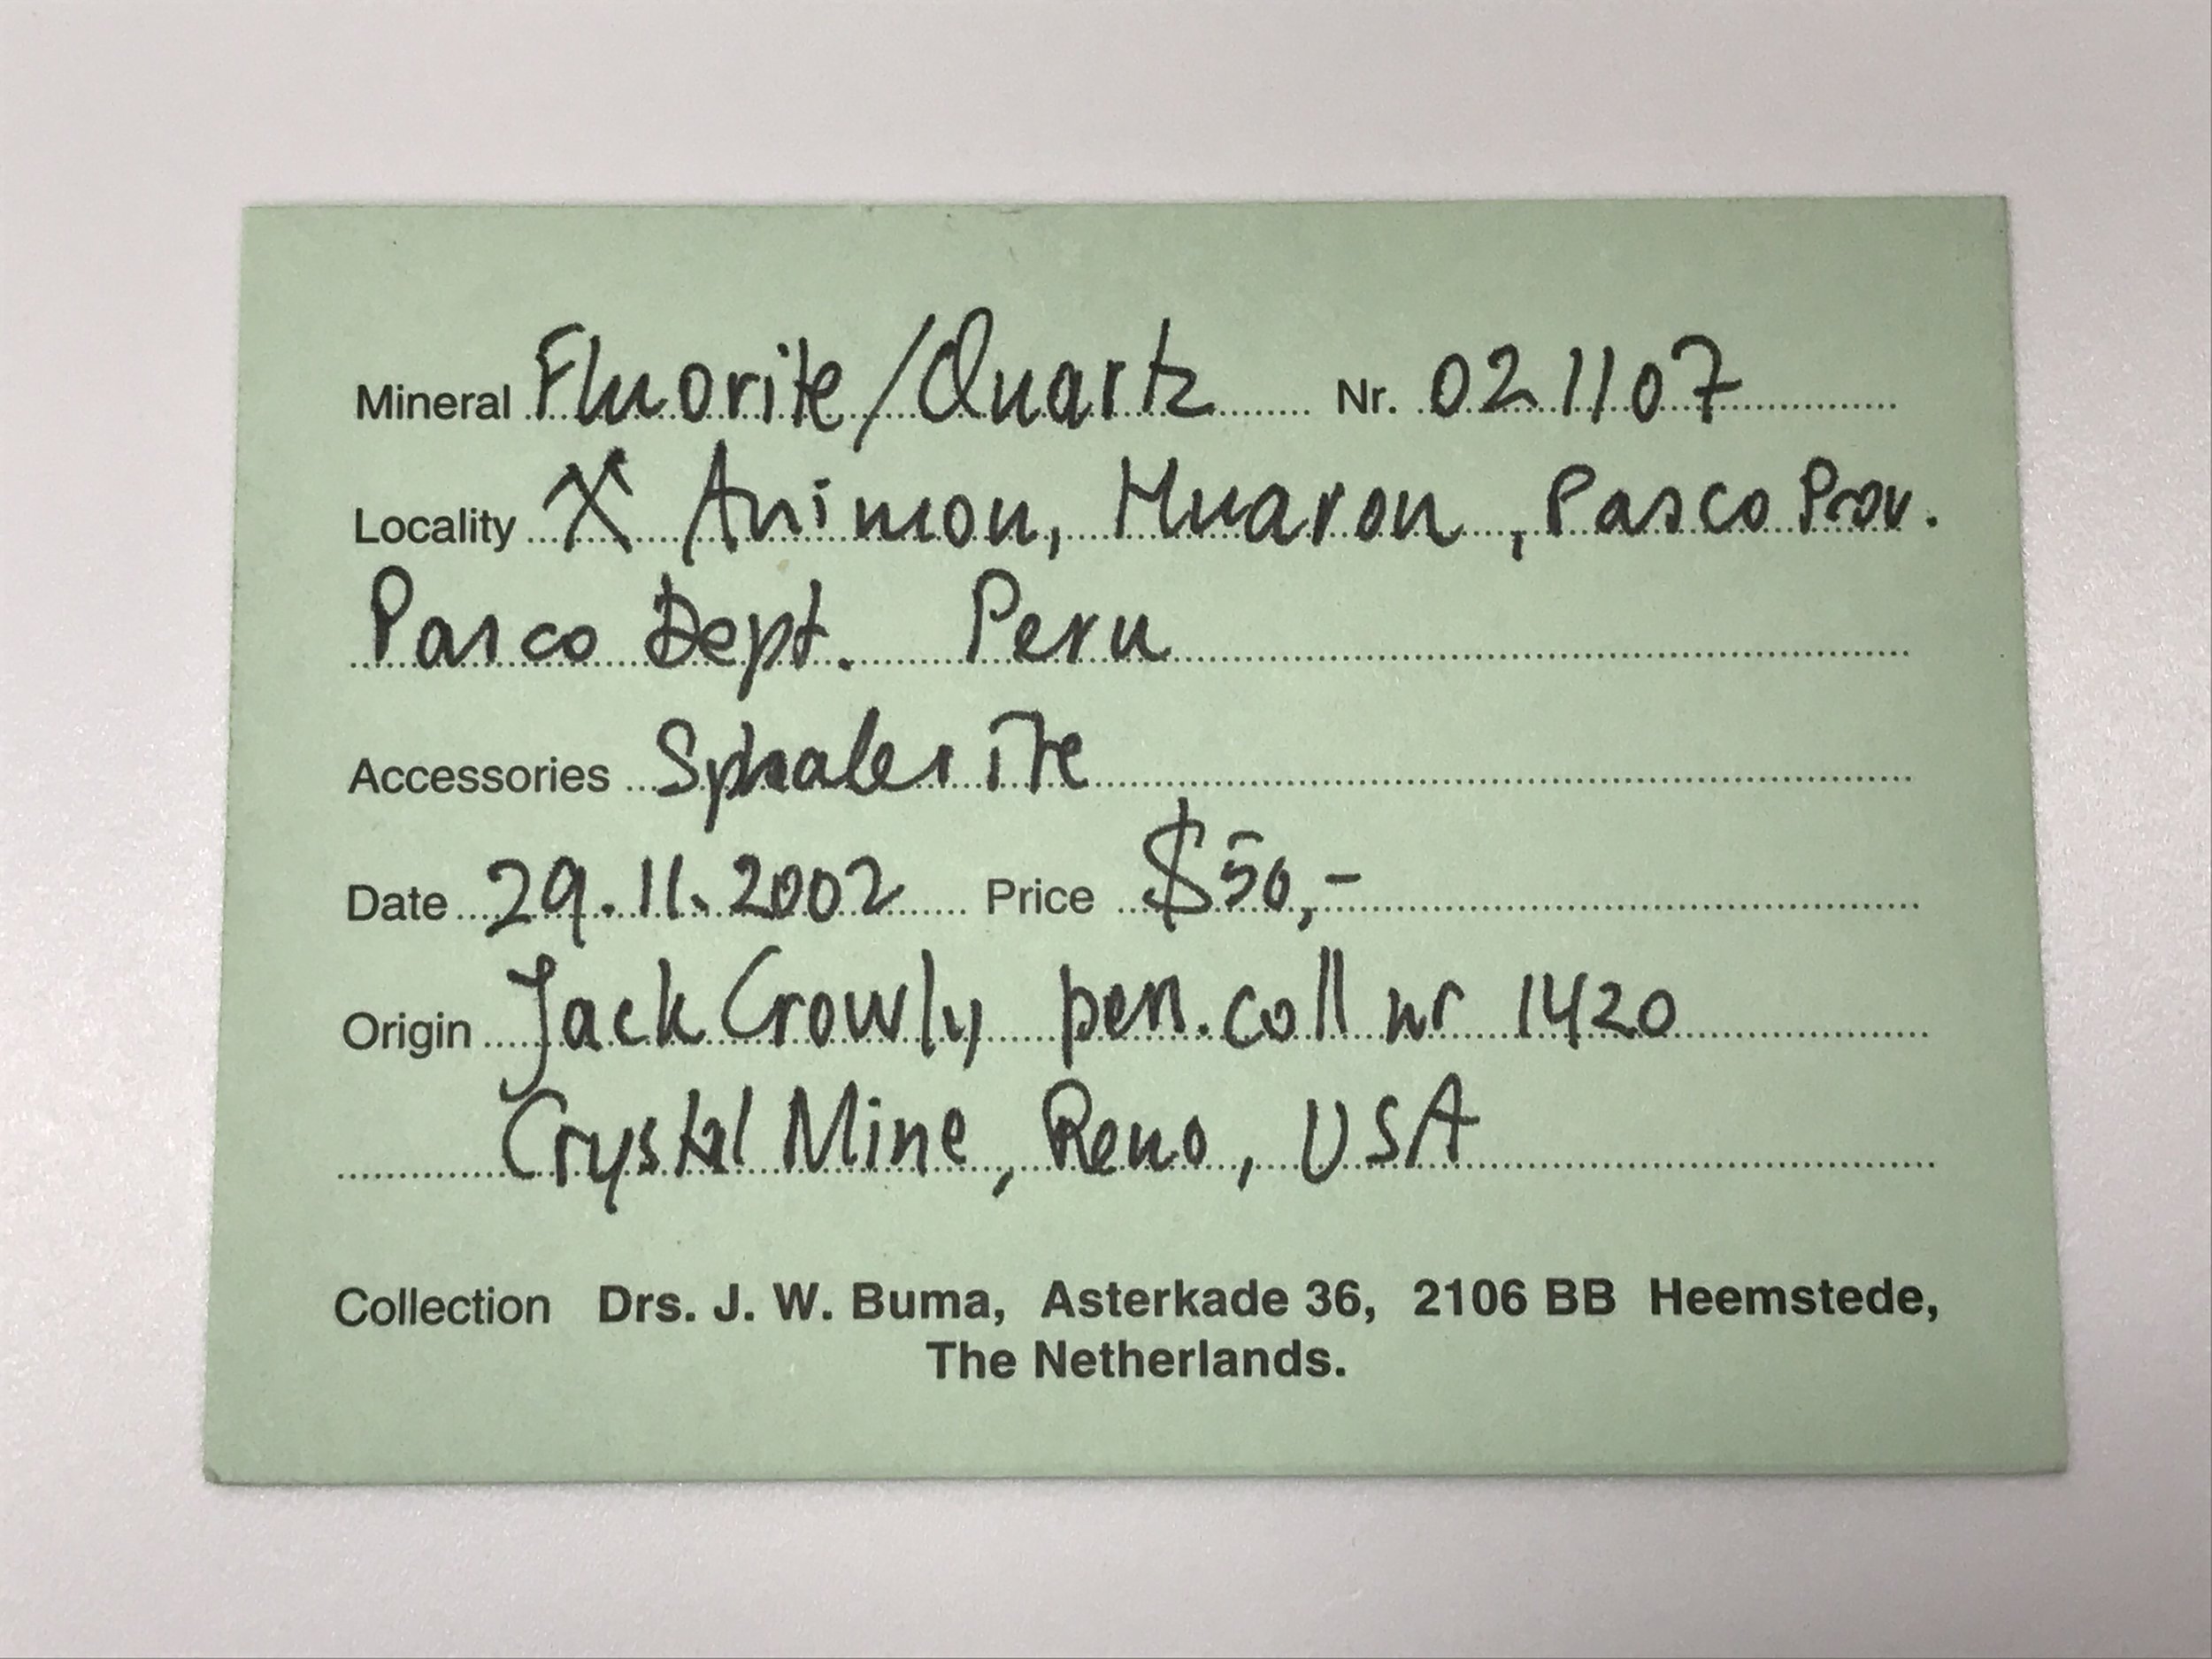 Mineral Fluorite/Quartz Nr. 021107
Locality X Animon, Huaron, Pasco Prov.
Pasco Dept. Peru
Accessories Sphalerite
Date 29.11.2002 Price $50,-
Origin Jack Crowly pers. coll nr 1420
Crystal Mine, Reno, USA
Collection Drs. J. W. Buma, Asterkade 36, 2106 BB Heemstede,
The Netherlands.